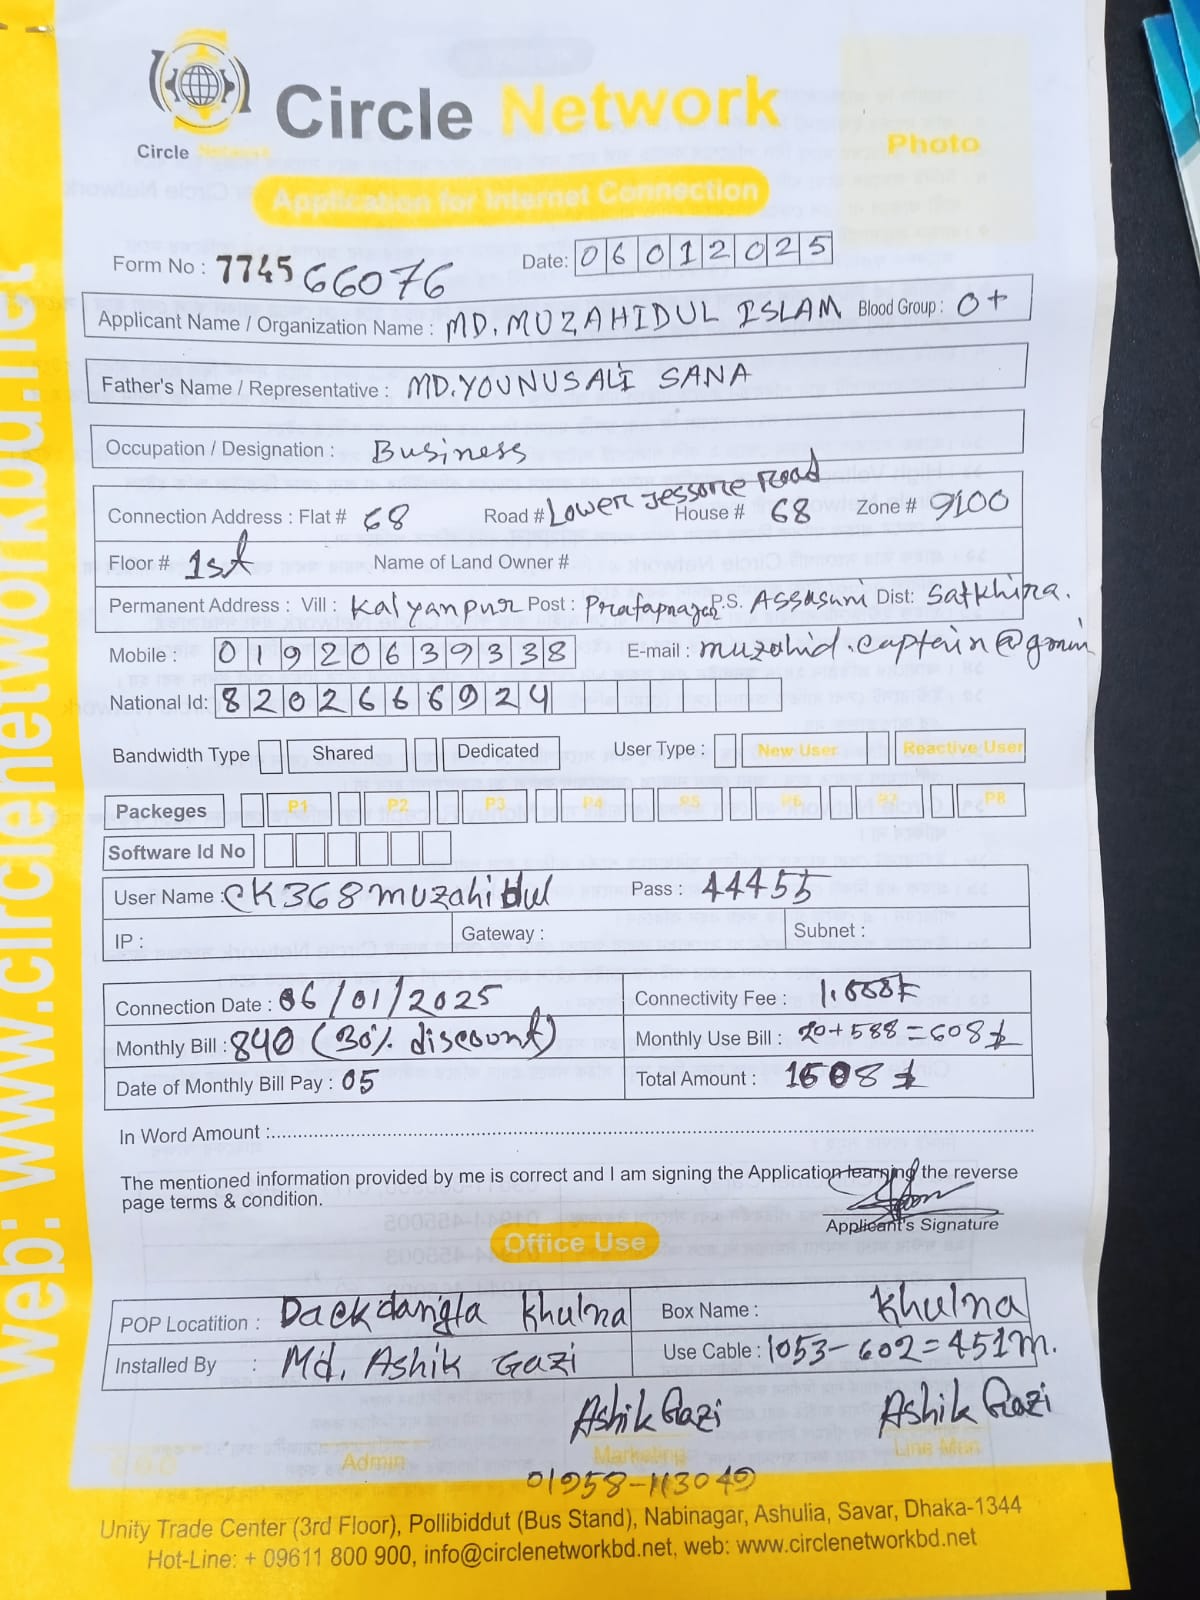 Circle Network
Circle Network
Photo
Application for Internet Connection
Form No : 7745 66076 Date: 06012025
Applicant Name / Organization Name : MD. MUZAHIDUL ISLAM Blood Group : O+
Father's Name / Representative : MD. YOUNUS ALI SANA
Occupation / Designation : Business
Connection Address : Flat # 68 Road # Lower Jessore Road House # 68 Zone # 9100
Floor # 1st Name of Land Owner #
Permanent Address : Vill : Kalyanpur Post : Pratapnagar P.S. Assasuni Dist: Satkhira.
Mobile : 01920639338 E-mail : muzahid.captain@gmai
National Id: 8202666924
Bandwidth Type Shared Dedicated User Type : New User Reactive User
Packeges P1 P2 P3 P4 P5 P6 P7 P8
Software Id No
User Name : CK368muzahidul Pass : 44455
IP : Gateway : Subnet :
Connection Date : 06/01/2025 Connectivity Fee :
Monthly Bill : 840 (30% discount) Monthly Use Bill : 20+588=608৳
Date of Monthly Bill Pay : 05 Total Amount : 1608৳
In Word Amount :
The mentioned information provided by me is correct and I am signing the Application learning the reverse
page terms & condition.
Applicant's Signature
Office Use
POP Locatition : Dackdangla Khulna Box Name : Khulna
Installed By : Md. Ashik Gazi Use Cable : 1053-602=451m.
Ashik Gazi Ashik Gazi
Admin Marketing Line Man
01958-113049
Unity Trade Center (3rd Floor), Pollibiddut (Bus Stand), Nabinagar, Ashulia, Savar, Dhaka-1344
Hot-Line: + 09611 800 900, info@circlenetworkbd.net, web: www.circlenetworkbd.net
web: www.circlenetworkbd.net